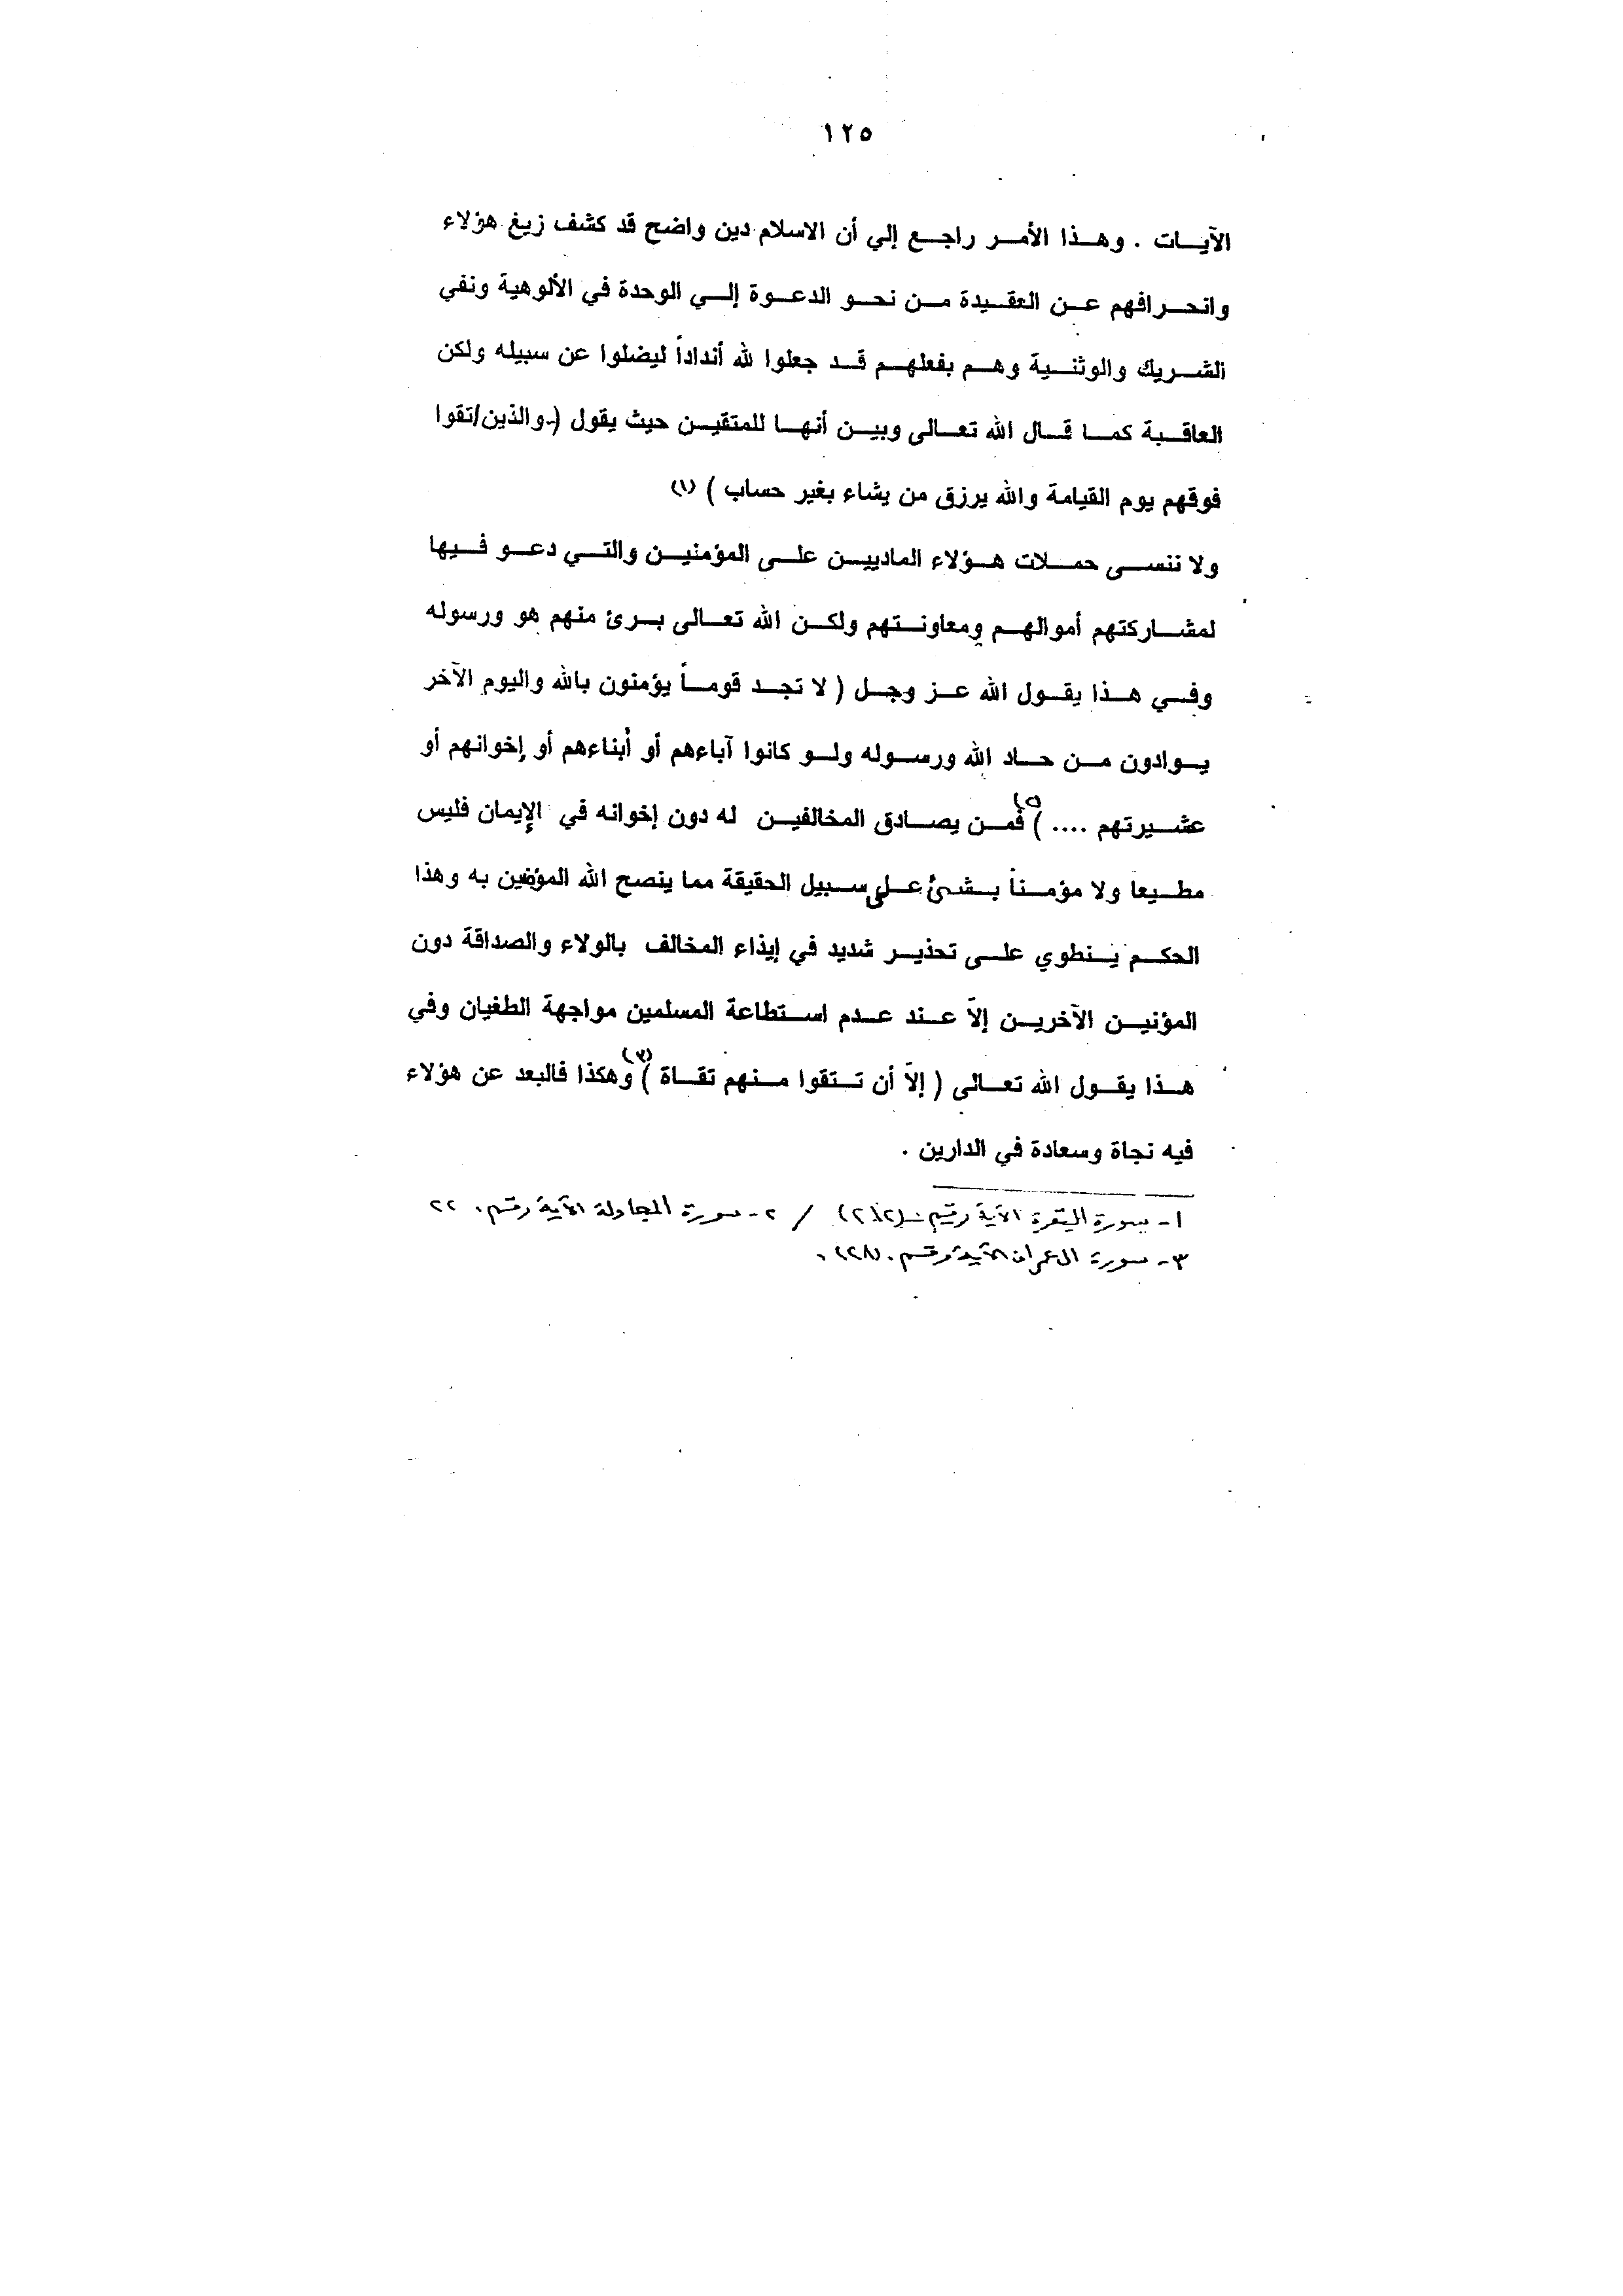 ١٢٥
الآيات . وهذا الأمر راجع إلي أن الاسلام دين واضح قد كشف زيغ هؤلاء
وانحرافهم عن العقيدة من نحو الدعوة إلي الوحدة في الألوهية ونفي
الشريك والوثنية وهم بفعلهم قد جعلوا لله أنداداً ليضلوا عن سبيله ولكن
العاقبة كما قال الله تعالى وبين أنها للمتقين حيث يقول ( والذين اتقوا
فوقهم يوم القيامة والله يرزق من يشاء بغير حساب ) (١)
ولا ننسى حملات هؤلاء الماديين على المؤمنين والتي دعو فيها
لمشاركتهم أموالهم ومعاونتهم ولكن الله تعالى برئ منهم هو ورسوله
وفي هذا يقول الله عز وجل ( لا تجد قوماً يؤمنون بالله واليوم الآخر
يوادون من حاد الله ورسوله ولو كانوا آباءهم أو أبناءهم أو إخوانهم أو
عشيرتهم .... ) (٢) فمن يصادق المخالفين له دون إخوانه في الإيمان فليس
مطيعا ولا مؤمناً بشئ على سبيل الحقيقة مما ينصح الله المؤمنين به وهذا
الحكم ينطوي على تحذير شديد في إيذاء المخالف بالولاء والصداقة دون
المؤنين الآخرين إلاّ عند عدم استطاعة المسلمين مواجهة الطغيان وفي
هذا يقول الله تعالى ( إلاّ أن تتقوا منهم تقاة ) (٣) وهكذا فالبعد عن هؤلاء
فيه نجاة وسعادة في الدارين .
١- سورة البقرة الآية رقم (٢١٢) / ٢- سورة المجادلة الآية رقم ٢٢
٣- سورة ال عمران الآية رقم (٢٨)